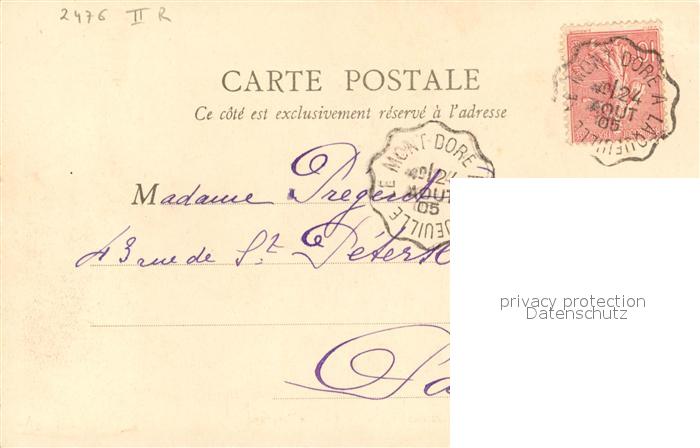 2476 II R
CARTE POSTALE
Ce côté est exclusivement réservé à l'adresse
LE MONT-DORE A LAQUEUILLE
24
AOUT
05
LE MONT-DORE A
24
AOUT
05
QUEUILLE
Madame
43 rue de St Péters
Pa
privacy protection
Datenschutz